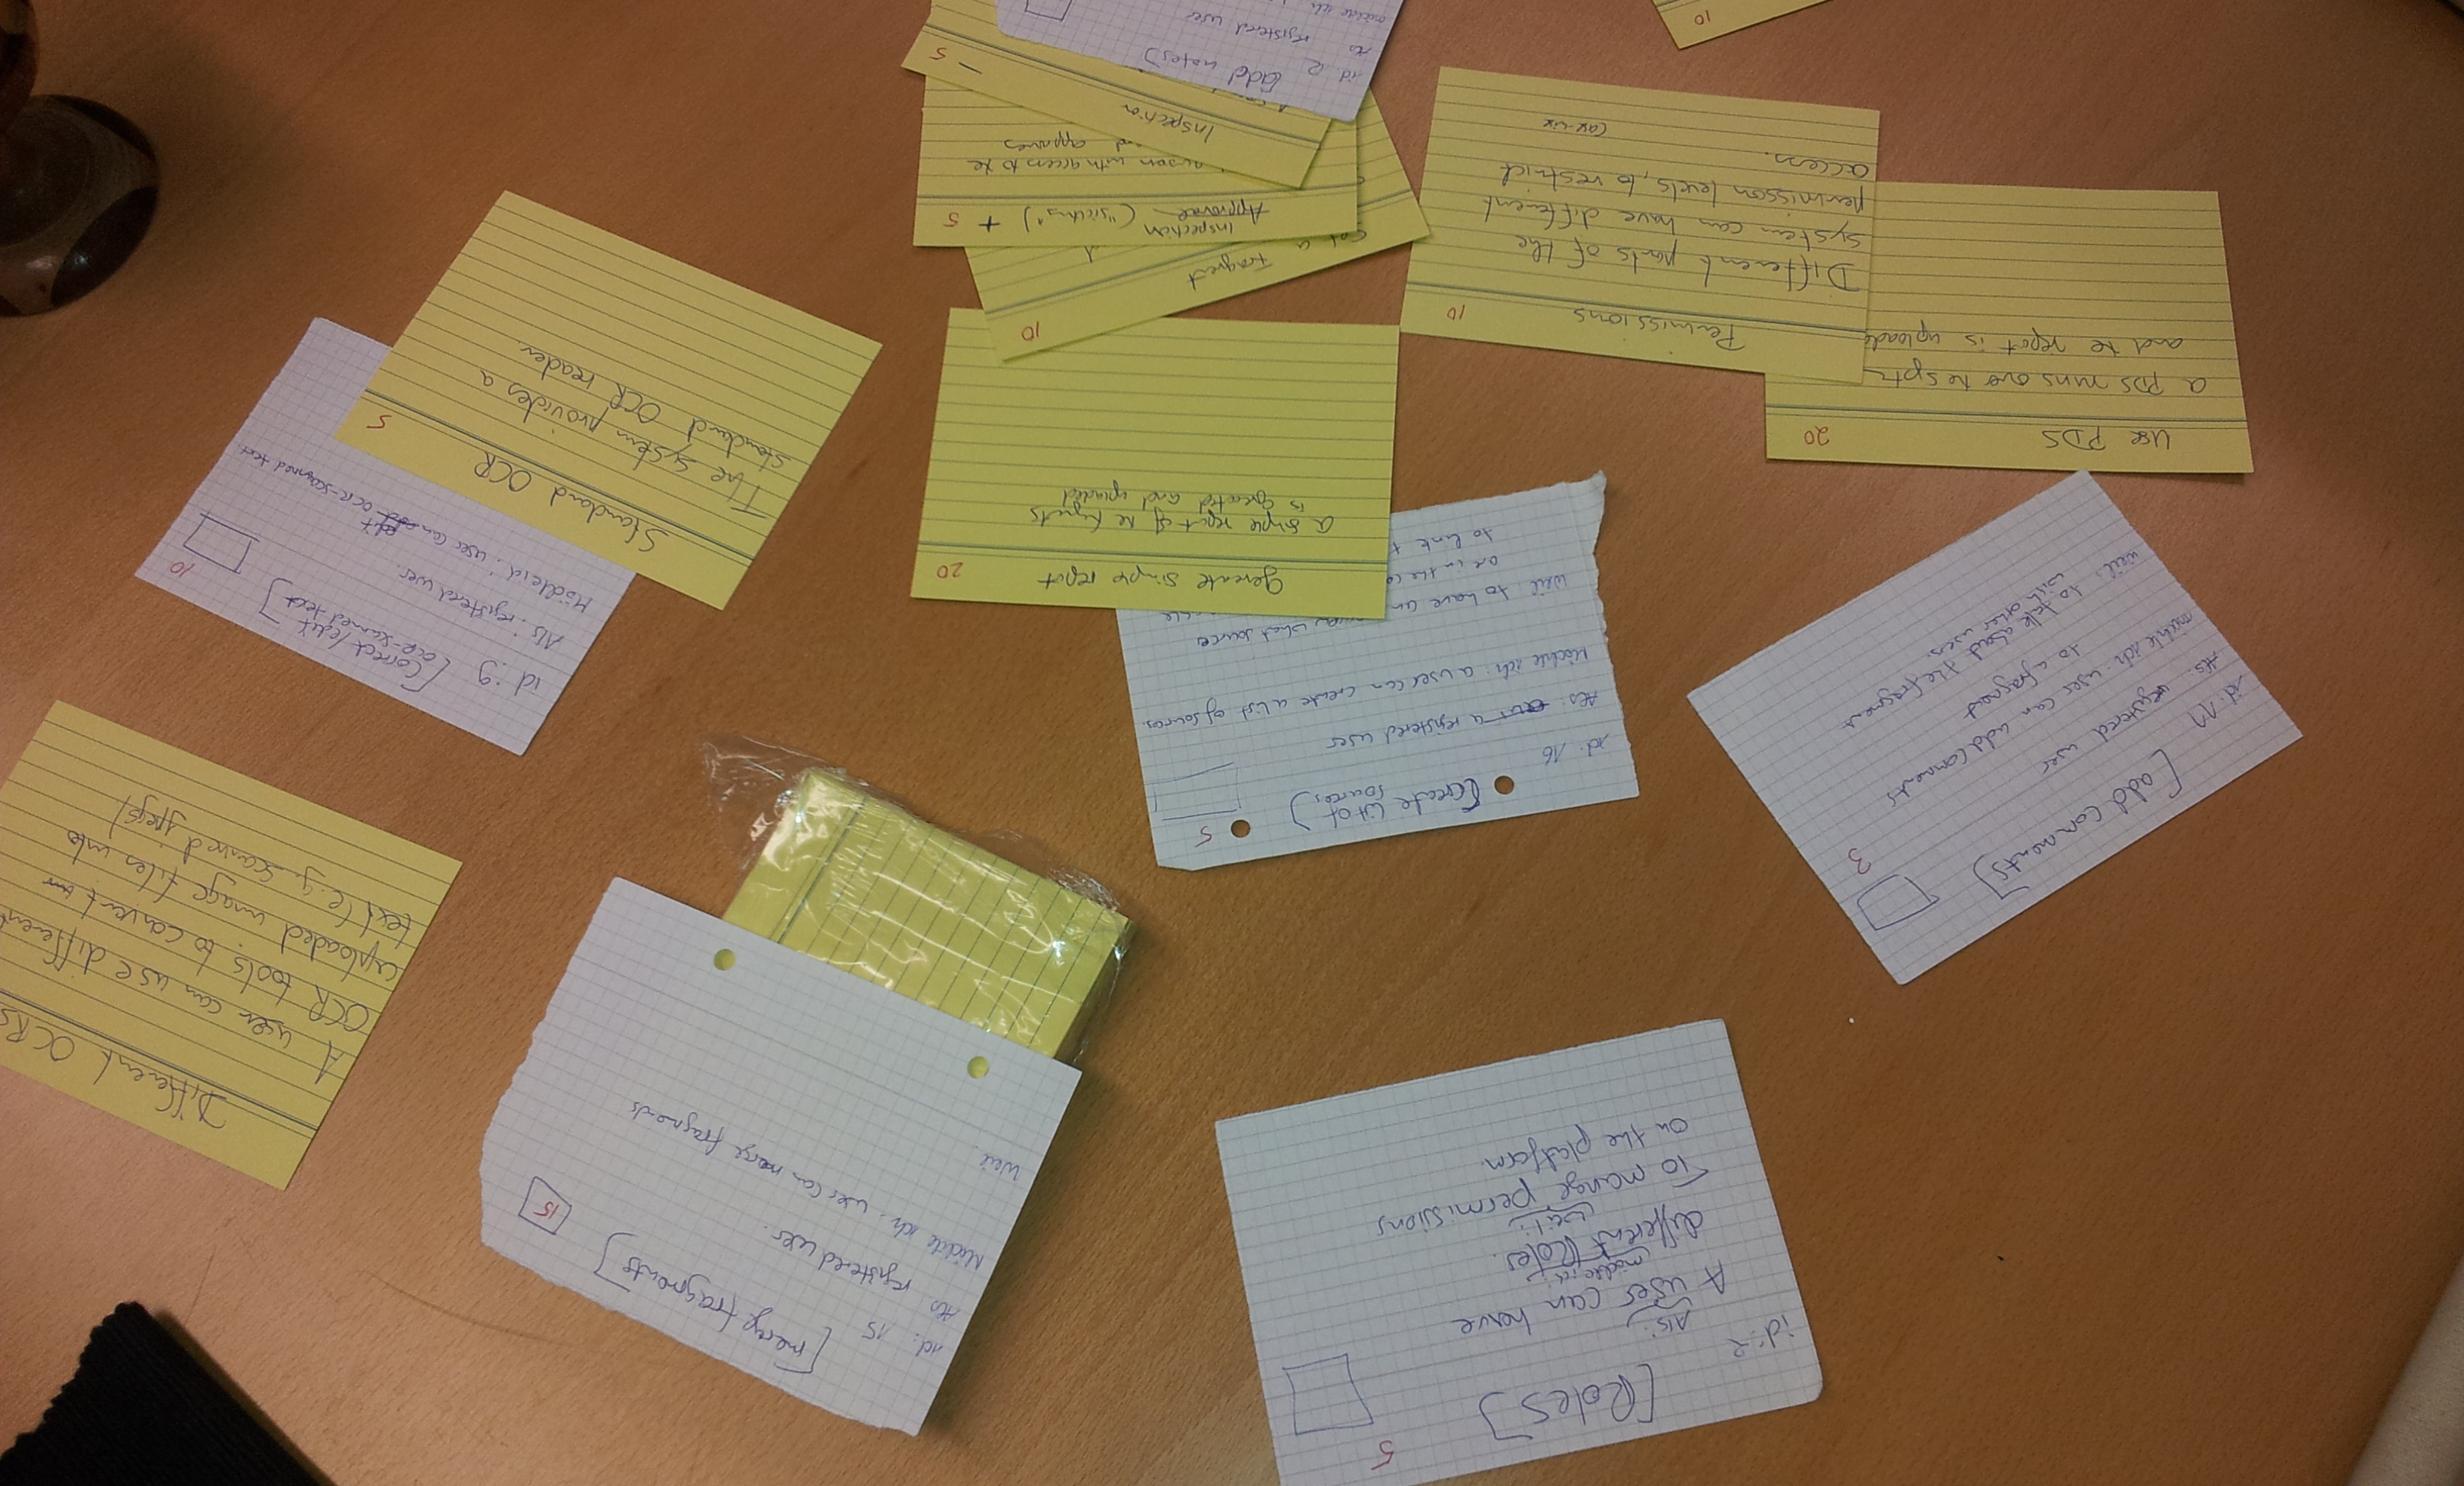 5
[Roles]
id: 2
Als:
A user can have
möchte ich:
different Roles.
weil:
To mange permissions
on the platform.
[merge fragments]
id: 15
Als registered user.
15
Möchte ich: user can merge fragments
Weil:
Different OCRs
A user can use different
OCR tools to convert
uploaded image files into
text (e.g. scanned jpegs)
[add comments]
3
id: 11
Als: registered user
möchte ich: user can add comments
to a fragment
weil: to talk about the fragment
with other users.
5
[Create list of
sources]
id: 16
Als: a registered user
Möchte ich: a user can create a list of sources.
Weil: to have an what source
are in the
to link
generate simple report
20
a simple report of the fragments
is generated and uploaded
id: 9
[Correct/edit
OCR-scanned text]
10
Als: registered user.
Möchte ich: user can edit OCR-scanned text
Standard OCR
5
The system provides a
standard OCR reader.
Use PDS
20
a PDS runs over the
and the report is
Permissions
10
Different parts of the
system can have different
permisson levels, to restrict
access.
Case-wise
10
a Fragment
Inspection
Approval ("sichten") + 5
person with access to the
approves
Inspection
- 5
[add notes]
id:
Als registered user
möchte ich
10